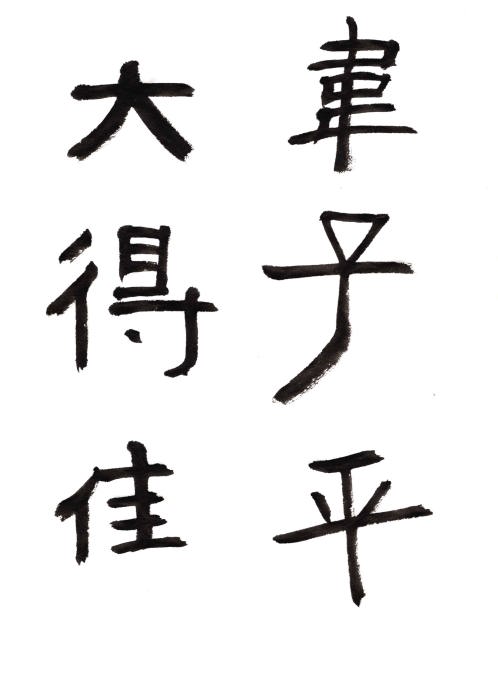 韋子平
大得佳